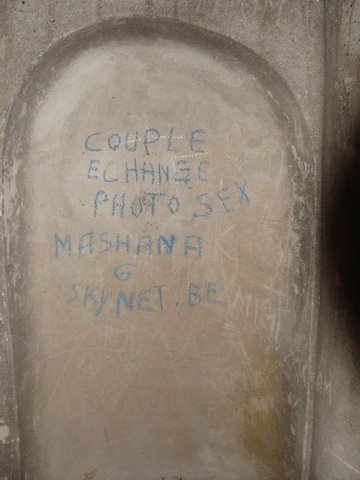 COUPLE
ECHANGE
PHOTO SEX
MASHANA
G
SKYNET.BE